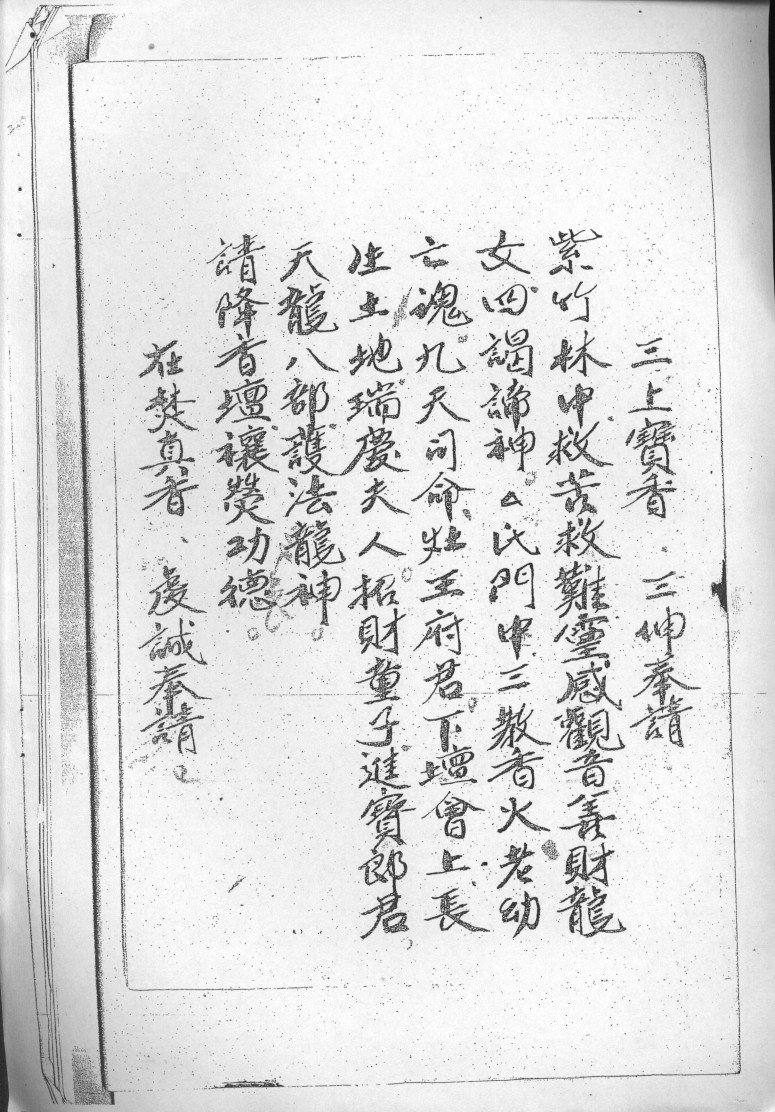 三上寶香、三伸奉請
紫竹林中救苦救難靈感觀音善財龍
女四謁諦神。厶氏門中三教香火老幼
亡魂。九天司命灶王府君。下壇會上長
生土地瑞慶夫人。招財童子進寶郎君、
天龍八部護法龍神。
請降香壇禳熒功德。
在焚真香、虔誠奉請。